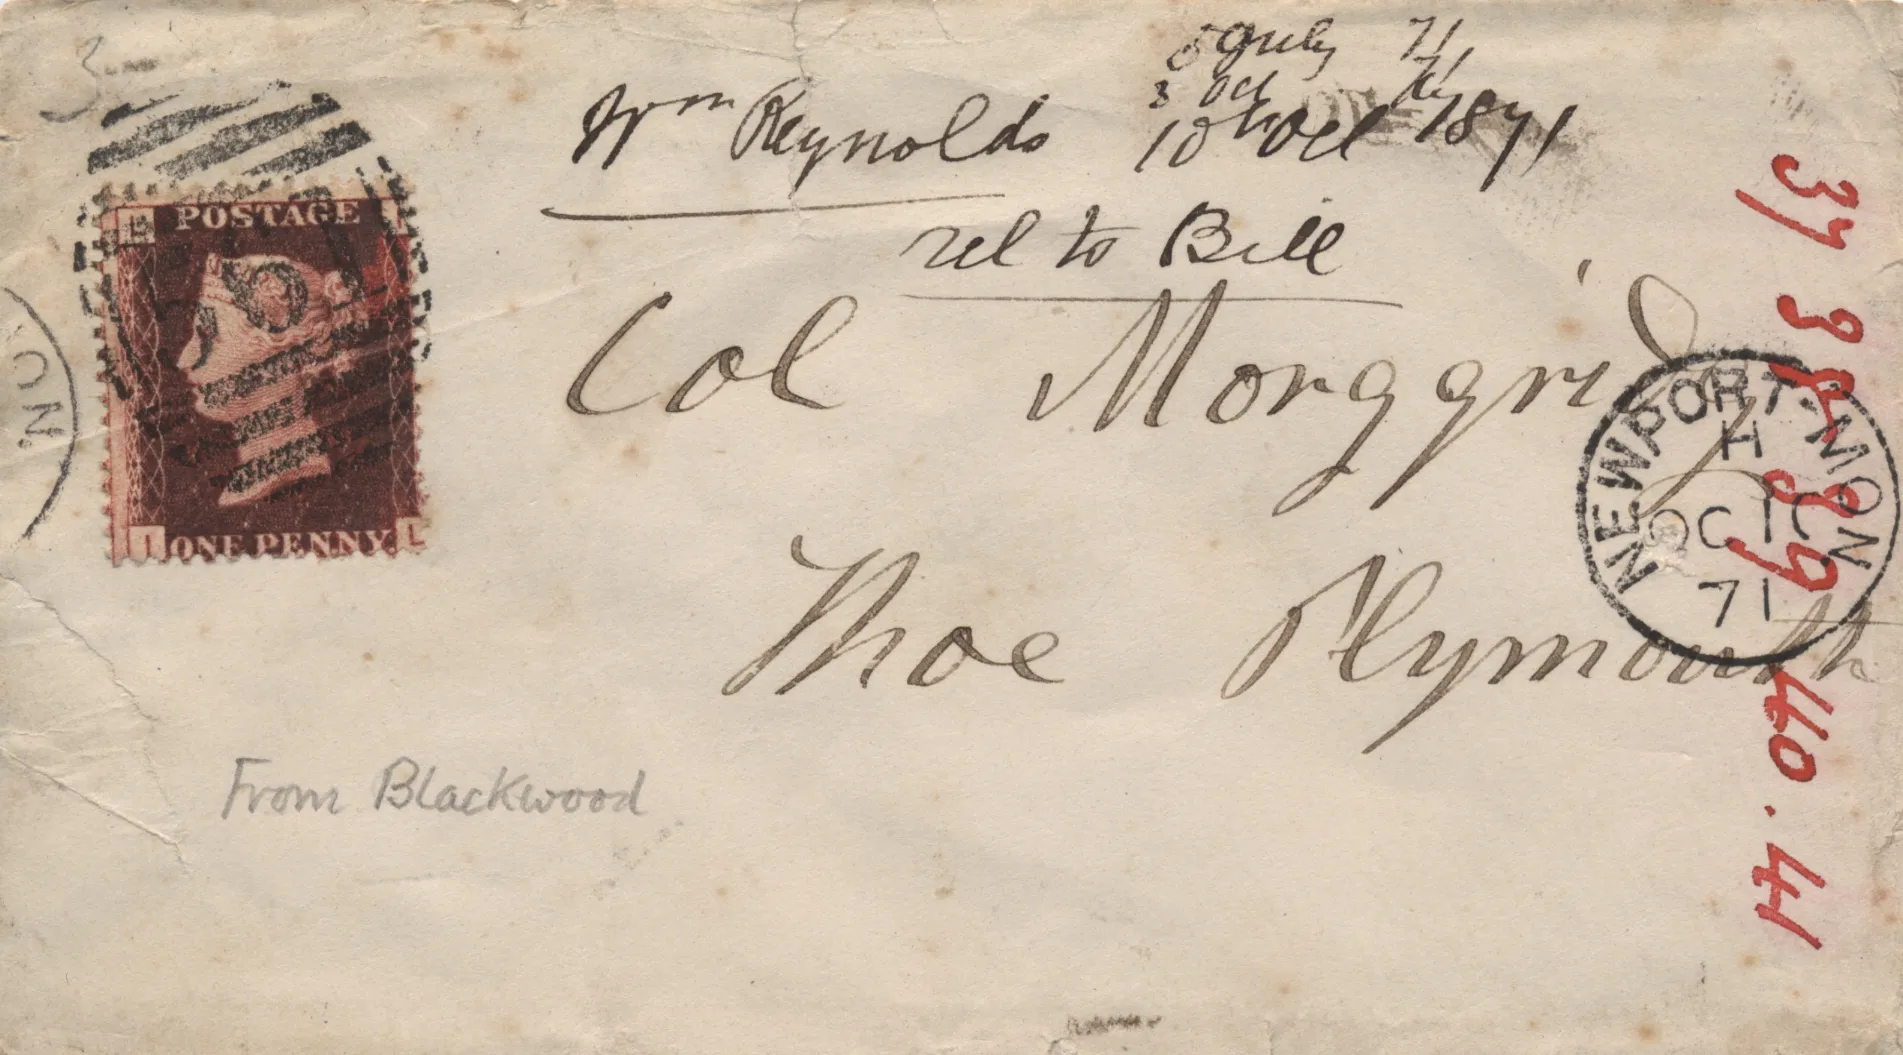 3
5 July 71
3 Oct 71
Wm Reynolds 10th Oct 1871
rel to Bill
Col Morggridg
Thoe Plymouth
From Blackwood
POSTAGE
L I
I L
ONE PENNY
ON
NEWPORT-MON
H
OC 10
71
37 38 & 39
40.41